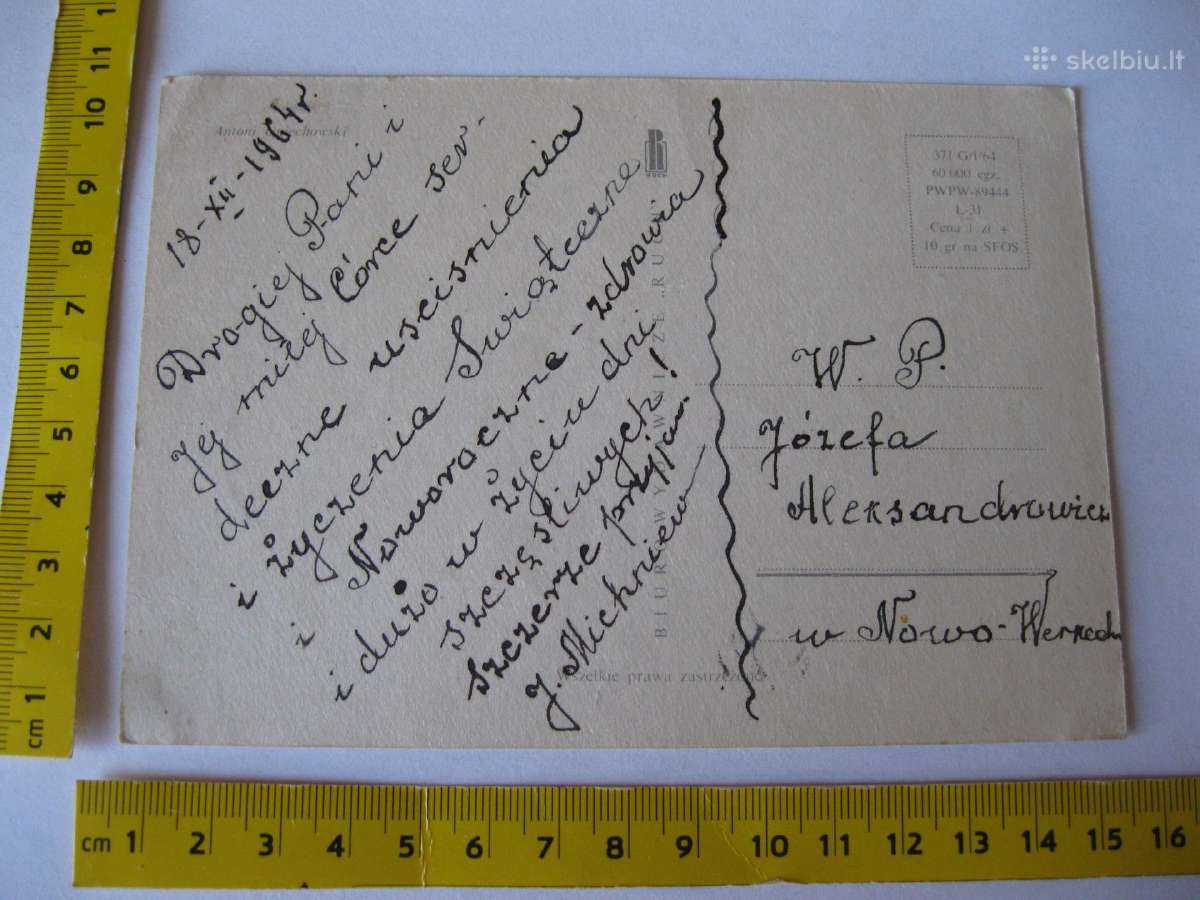 skelbiu.lt
Antoni
18-XII-1964r.
Drogiej Pani i
Jej miłej Córce ser-
deczne uscisnienia
i życzenia Swiąteczne
i Noworoczne - zdrowia
i dużo w życiu dni
szczęsliwych!
szczerze przyjazn.
J. Michniew
BIURO WYDAWNICZE „RUCH”
Wszelkie prawa zastrzeżone
371 G/I/64
60 000 egz.
PWPW-89444
L-31
Cena 1 zł +
10 gr. na SFOS
W. P.
Józefa
Aleksandrowicz
w Nowo-
cm 1 2 3 4 5 6 7 8 9 10 11
cm 1 2 3 4 5 6 7 8 9 10 11 12 13 14 15 16